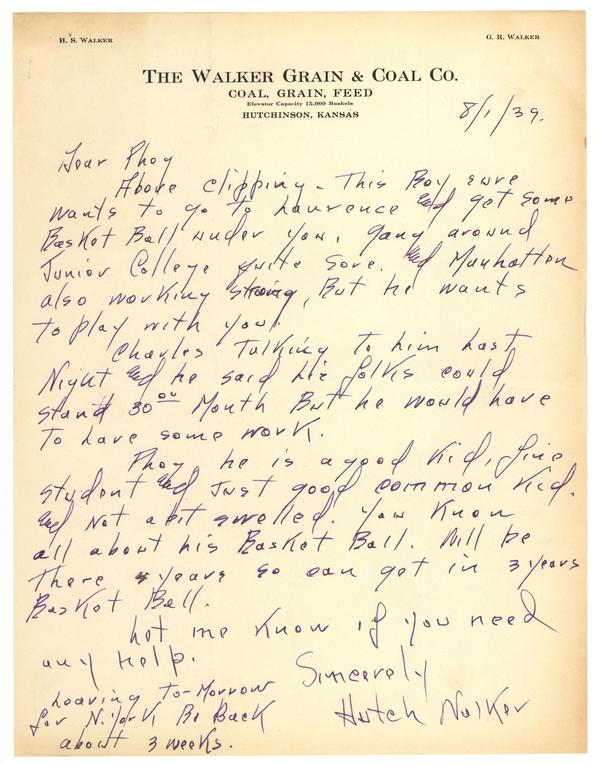 H. S. WALKER
G. R. WALKER
THE WALKER GRAIN & COAL CO.
COAL, GRAIN, FEED
Elevator Capacity 15,000 Bushels
HUTCHINSON, KANSAS
8/1/39.
Dear Phog
Above clipping - This Boy sure
wants to go to Lawrence and get some
Basket Ball under you, gang around
Junior College quite sore. and Manhatton
also working strong, But he wants
to play with you.
Charles talking to him Last
Night and he said his folks could
stand 30.00 Month But he would have
To have some work.
Phog he is a good Kid, fine
student and Just good common Kid.
and Not a bit swelled. You Know
all about his Basket Ball. Will be
There 4 years so can get in 3 years
Basket Ball.
Let me Know if you need
any help.
Sincerely
Hutch Walker
Leaving To-Morrow
for N.York Be Back
about 3 weeks.